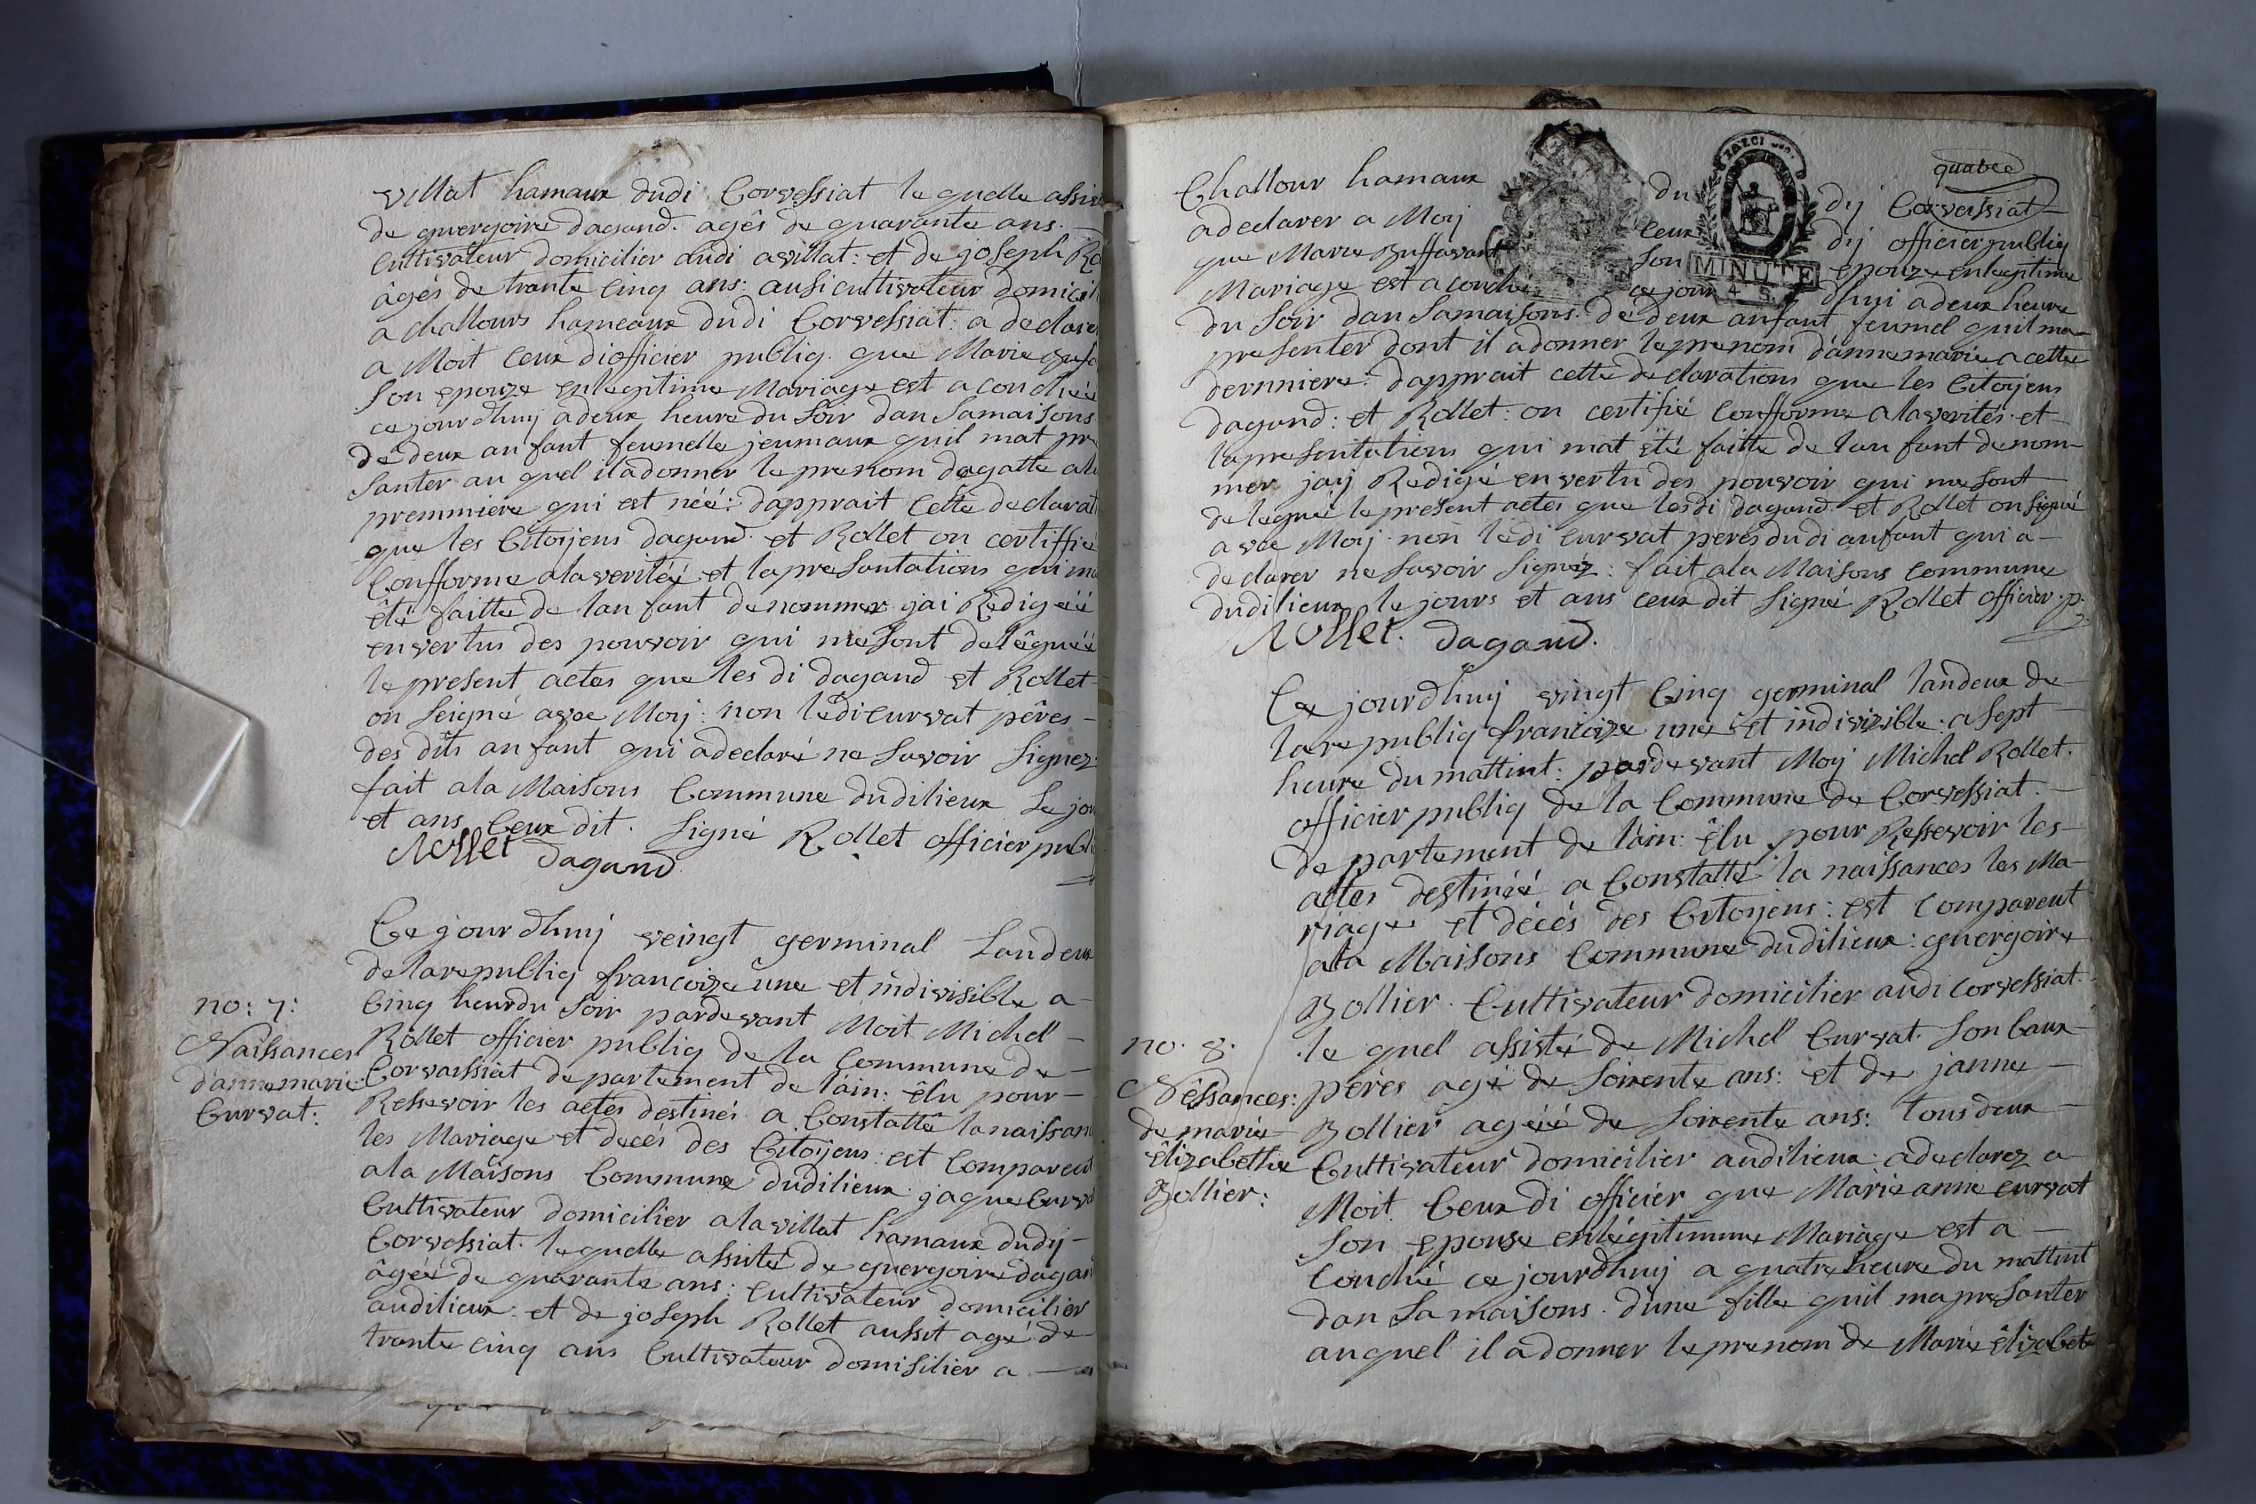 villat hamaux dudi Corvessiat le quelle assis
de guergoire dagand. agês de quarante ans.
Cultivateur domicilier audi avillat: et de joseph Ro
âgés de trante cinq ans: ausi cultivateur domicili
a challours hameaux dudi Corvessiat: a declarer
a Moit ceux di officier publiq. que Marie Buf
son epouze enlegitime Mariage est acouchéé
ce jourdhuij adeux heure du soir dan samaisons
de deux anfant feumelle jeumaux quil mat pre
santer au quel ila donner le prenom dagatte ala
premmiere qui est néé: dapprait cette declarat
que les Citoijens dagand. et Rollet on certiffié
Confforme alaveritéé et lapresantations qui ma
êté faitte de lanfant denommer jai Redigéé
envertus des pouvoir qui mesont delêguéé
le present actes que les di dagand et Rollet
on seigné avec Moij: non lêdi curvat pêres -
des dits anfant qui adeclaré ne savoir signez
fait ala Maisons Commune dudilieux le jour
et ans Ceux dit. signé Rollet officier publi
Rollet dagand
no: 7:
Naissances
d'anne marie
Curvat:
Ce jourdhuij veingt germinal Landeux
delarepubliq francoize une et indivisible a -
Cinq heur du soir pardevant Moit Michel -
Rollet officier publiq de la Commune de -
Corvassiat departement de lain: êlu pour -
Ressevoir les actes destinés a Constattê lanaissan
les Mariage et decés des Citoijens: est Comparent
ala Maisons Commune dudilieux: jaque Curva
Cultivateur domicilier alavillat hamaux dudij -
Corvessiat. le quelle assisté de guergoire dagan
âgéé de quarante ans: Cultivateur domicilier
audilieux: et de joseph Rollet aussit agé de -
trante cinq ans Cultivateur domisilier a -
quatre
Challour hamaux du dij Corvessiat
adeclarer a Moij ceux dij officier publiq
que Marie Buffavant son epouze enlegitime
Mariage est acouchéé ce jour dhui adeux heure
MINUTE
du soir dan samaisons. de deux anfant feumel quil ma
presenter dont il adonner leprenom d'annemarie acette
dernniere: dapprait cette declarations que les Citoijens
dagand: et Rollet: on certifié Confforme alaverités. et
lapresentations qui mat êté faitte de lanfant denom-
mer jaij Redigé envertu des pouvoir qui mesont
delegué lepresent actes que lesdi dagand et Rollet on signé
avec Moij. non lêdi curvat peres dudi anfant qui a -
declarer nesavoir signéz: fait ala Maisons commune
dudilieux le jours et ans ceux dit signé Rollet officier. p.
Rollet. dagand.
no. 8.
Néssances:
de marie
êlizabethe
Bollier:
Ce jourdhuij vingt Cinq germinal landeux de -
larepubliq francoize une et indivizible: a sept -
heure du mattint: pardevant Moij Michel Rollet.
officier publiq de la Commune de Corvessiat. -
departement de lain: êlu pour Ressevoir les -
actes destinéé a Constatté la naissances les Ma-
riage et décés des Citoijens: est Comparent
ala Maisons Commune dudilieux: guergoire
Bollier. Cultivateur domicilier audi corvessiat. -
le quel assisté de Michel Curvat. son baux -
péres agé de soixente ans: et de janne -
Bollier agéé de soixente ans: tous deux -
Cultivateur domicilier audilieux: adeclarez a
Moit Ceux di officier que Marie anne curvat
son epouse enlégitimme Mariage est a -
couché ce jourdhuij a quatre heure du mattint
dan sa maisons. d'une fille quil mapresanter
auquel il adonner leprenom de Marie êlizabet